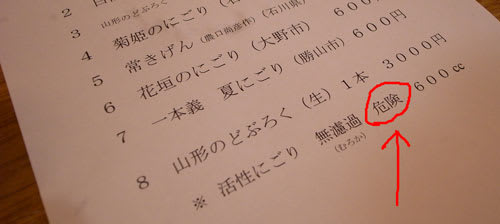 2
3 山形のどぶろく
4 菊姫のにごり（石
5 常きげん（農口尚彦作）（石川県）
6 花垣のにごり（大野市）６００円
7 一本義　夏にごり（勝山市）６００円
8 山形のどぶろく（生）１本　３０００円
※ 活性にごり　無濾過　危険　６００cc
（むろか）